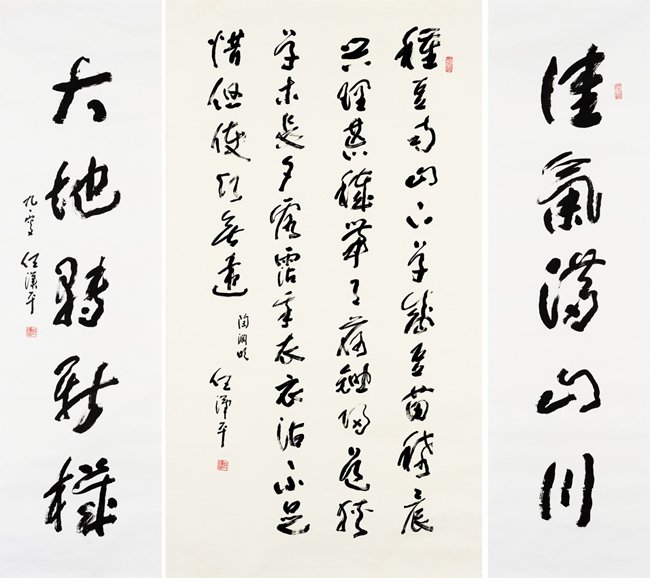 佳氣滿山川
種豆南山下草盛豆苗稀晨
兴理荒穢帶月荷鋤歸道狹
草木長夕露沾我衣衣沾不足
惜但使願無違
陶渊明
任漢平
大地轉新機
任漢平